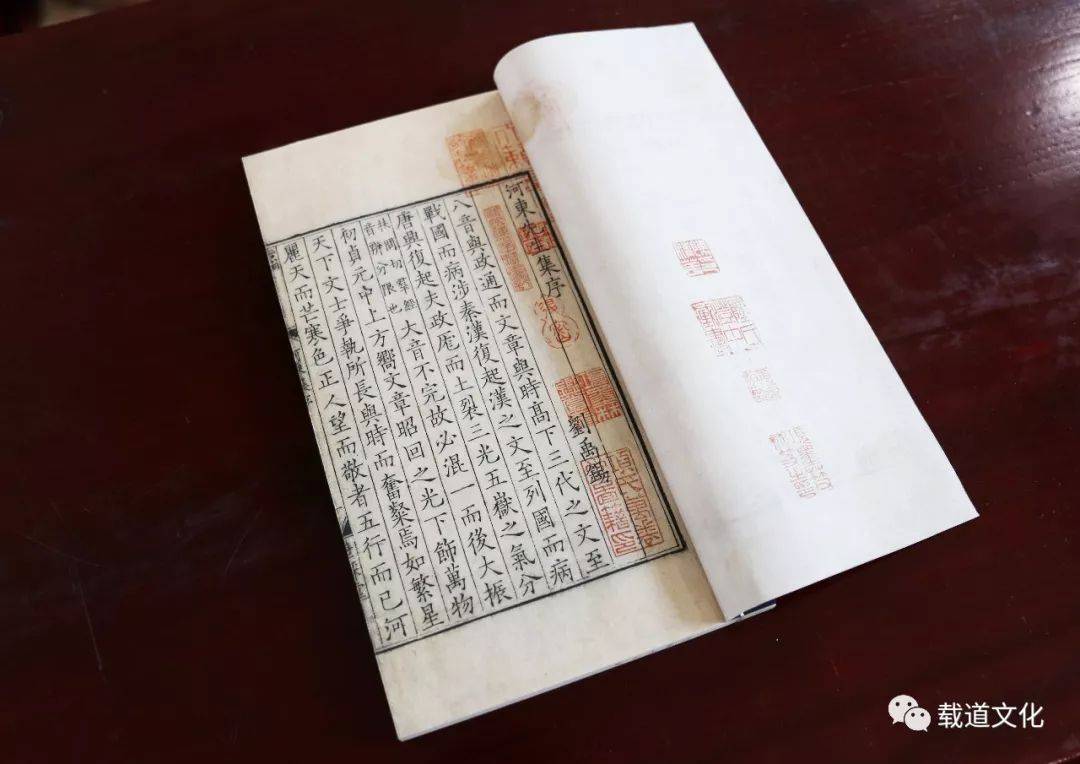 河東先生集序
劉禹錫
八音與政通而文章與時高下三代之文至
戰國而病涉秦漢復起漢之文至列國而病
唐興復起夫政厖而土裂三光五嶽之氣分
扶問切羣經
音辨分限也
大音不完故必混一而後大振
初貞元中上方嚮文章昭回之光下飾萬物
天下文士爭執所長與時而奮粲焉如繁星
麗天而芒寒色正人望而敬者五行而已河
载道文化